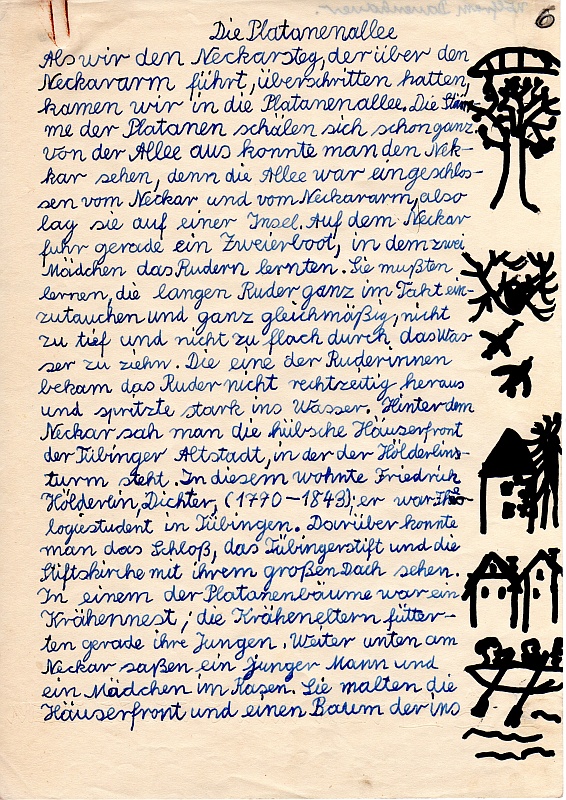 6
Die Platanenallee
Als wir den Neckarsteg, der über den
Neckararm führt, überschritten hatten,
kamen wir in die Platanenallee. Die Stäm-
me der Platanen schälen sich schon ganz.
Von der Allee aus konnte man den Nek-
kar sehen, denn die Allee war eingeschlos-
sen vom Neckar und vom Neckararm, also
lag sie auf einer Insel. Auf dem Neckar
fuhr gerade ein Zweierboot, in dem zwei
Mädchen das Rudern lernten. Sie mußten
lernen, die langen Ruder ganz im Takt ein-
zutauchen und ganz gleichmäßig, nicht
zu tief und nicht zu flach durch das Was-
ser zu ziehn. Die eine der Ruderinnen
bekam das Ruder nicht rechtzeitig heraus
und spritzte stark ins Wasser. Hinter dem
Neckar sah man die hübsche Häuserfront
der Tübinger Altstadt, in der der Hölderlins-
turm steht. In diesem wohnte Friedrich
Hölderlin, Dichter, (1790-1843); er war Theo-
logiestudent in Tübingen. Darüber konnte
man das Schloß, das Tübingerstift und die
Stiftskirche mit ihrem großen Dach sehen.
In einem der Platanenbäume war ein
Krähennest; die Kräheneltern fütter-
ten gerade ihre Jungen. Weiter unten am
Neckar saßen ein junger Mann und
ein Mädchen im Rasen. Sie malten die
Häuserfront und einen Baum der ins